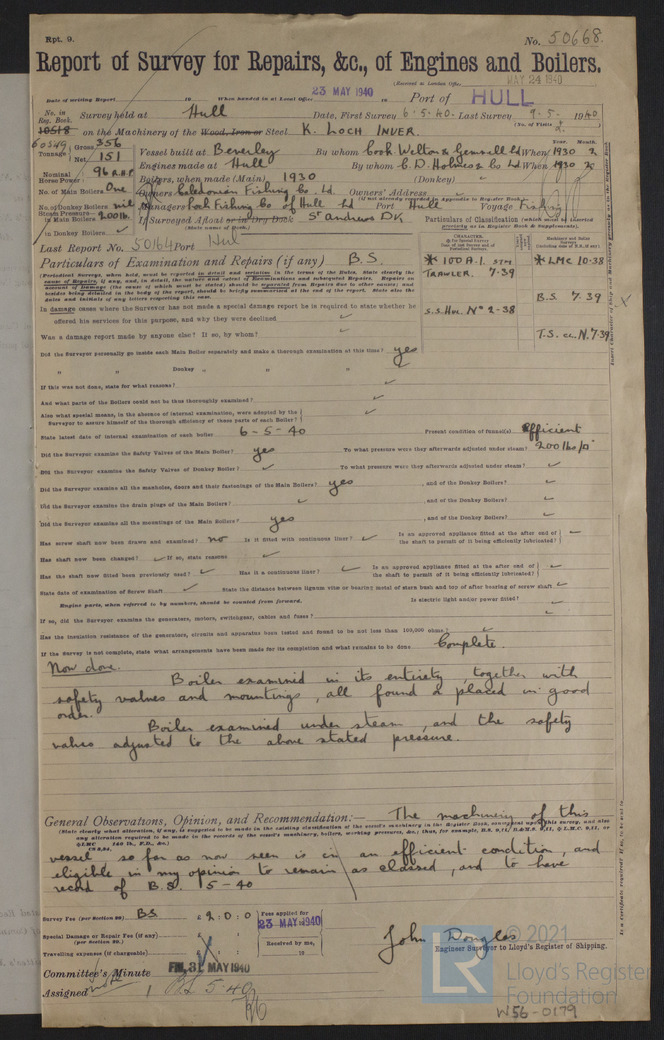 Rpt. 9.
No. 50668.
Report of Survey for Repairs, &c., of Engines and Boilers.
(Received at London Office MAY 24 1940
Date of writing Report 19 When handed in at Local Office 23 MAY 1940 19 Port of HULL
No. in Reg. Book. Survey held at Hull Date, First Survey 6.5.40. Last Survey 9.5.1940
(No. of Visits 2.)
10518 on the Machinery of the Wood, Iron or Steel K. LOCH INVER.
60549
Tonnage { Gross 356 Net 151
Vessel built at Beverley By whom Cook Welton & Gemmell Ld When 1930 2
Year. Month.
Nominal Horse Power 96 R.H.P Engines made at Hull By whom C.D. Holmes & Co Ld When 1930 2
Boilers, when made (Main) 1930 (Donkey) ✓
No. of Main Boilers One Owners Caledonian Fishing Co. Ld. Owners' Address
(If not already recorded in Appendix to Register Book.)
No. of Donkey Boilers nil Managers Fishing Co of Hull Ld Port Hull Voyage Fishing
Steam Pressure— in Main Boilers 200 lb. If Surveyed Afloat or in Dry Dock St Andrews Dk.
(State name of Dock.)
in Donkey Boilers ✓
Particulars of Classification (which must be inserted precisely as in Register Book & Supplements).
Last Report No. 50164 Port Hul
Particulars of Examination and Repairs (if any) B.S.
✱ 100 A.1. STM
TRAWLER. 7.39
S.S. HUL. No 2-38
✱ LMC 10.38
B.S. 7.39
T.S. CL. N. 7.39
In damage cases where the Surveyor has not made a special damage report he is required to state whether he
offered his services for this purpose, and why they were declined ✓
Was a damage report made by anyone else? If so, by whom? ✓
Did the Surveyor personally go inside each Main Boiler separately and make a thorough examination at this time? yes
" " Donkey " " " ✓
If this was not done, state for what reasons? ✓
And what parts of the Boilers could not be thus thoroughly examined? ✓
Also what special means, in the absence of internal examination, were adopted by the
Surveyor to assure himself of the thorough efficiency of these parts of each Boiler? ✓
State latest date of internal examination of each boiler 6-5-40 Present condition of funnel(s) Efficient
Did the Surveyor examine the Safety Valves of the Main Boiler? yes To what pressure were they afterwards adjusted under steam? 200 lbs/□"
Did the Surveyor examine the Safety Valves of Donkey Boiler? ✓ To what pressure were they afterwards adjusted under steam? ✓
Did the Surveyor examine all the manholes, doors and their fastenings of the Main Boilers? yes , and of the Donkey Boilers? ✓
Did the Surveyor examine the drain plugs of the Main Boilers? ✓ , and of the Donkey Boilers? ✓
Did the Surveyor examine all the mountings of the Main Boilers? yes , and of the Donkey Boilers? ✓
Has screw shaft now been drawn and examined? no Is it fitted with continuous liner? ✓ Is an approved appliance fitted at the after end of the shaft to permit of it being efficiently lubricated? ✓
Has shaft now been changed? ✓ If so, state reasons ✓
Has the shaft now fitted been previously used? ✓ Has it a continuous liner? ✓ Is an approved appliance fitted at the after end of the shaft to permit of it being efficiently lubricated? ✓
State date of examination of Screw Shaft ✓ State the distance between lignum vitæ or bearing metal of stern bush and top of after bearing of screw shaft ✓
Engine parts, when referred to by numbers, should be counted from forward. Is electric light and/or power fitted? ✓
If so, did the Surveyor examine the generators, motors, switchgear, cables and fuses? ✓
Has the insulation resistance of the generators, circuits and apparatus been tested and found to be not less than 100,000 ohms? ✓
If the Survey is not complete, state what arrangements have been made for its completion and what remains to be done Complete.
Now done.
Boiler examined in its entirety, together with
safety valves and mountings, all found or placed in good
order.
Boiler examined under steam, and the safety
valves adjusted to the above stated pressure.
General Observations, Opinion, and Recommendation:— The machinery of this
vessel, so far as now seen is in an efficient condition, and
eligible in my opinion to remain as classed, and to have
record of B.S. 5-40
Survey Fee (per Section 29) BS £2:0:0 Fees applied for 23 MAY 1940
Special Damage or Repair Fee (if any) (per Section 29.)
Travelling expenses (if chargeable) Received by me, 19
John Douglas
Engineer Surveyor to Lloyd's Register of Shipping.
Committee's Minute FRI. 31 MAY 1940
Assigned BS 5.40
© 2021
LR
Lloyd's Register
Foundation
W56-0179